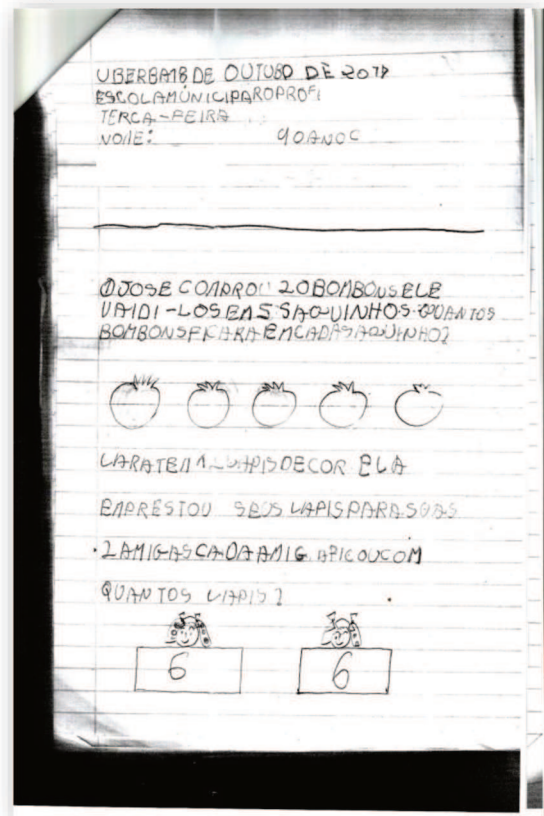 UBERBA18 DE OUTUBO DE 2018
ESCOLAMÚNICIPAROPROFI
TERCA-FEIRA
NOME: 90ANOC
① JOSE COMPROU 20BOMBONSELE
VAIDI-LOSEM 5 SAQUINHOS. QUANTOS
BOMBONSFICARAEMCADASAQUINHO?
LARATEM 12LAPISDECOR ELA
EMPRESTOU SEUS LAPISPARASUAS
.2AMIGASCADAAMIGAFICOUCOM
QUANTOS LAPIS?
6 6